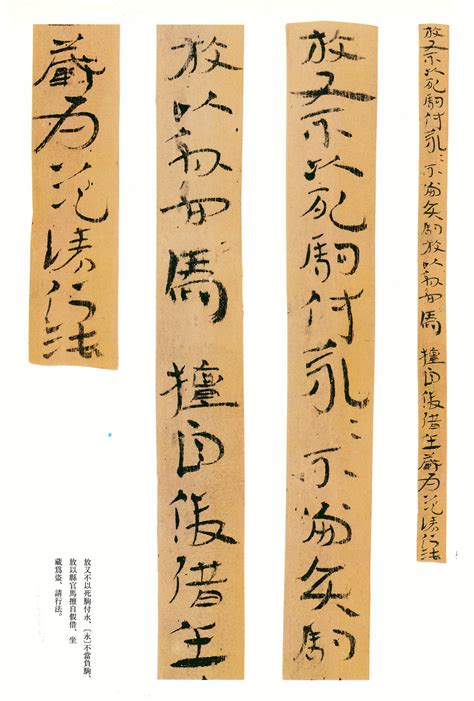 放又不以死駒付永〻不當負駒放以縣官馬擅自假借坐藏為盜請行法
放又不以死駒付永〻不當負駒
放以縣官馬擅自假借坐
藏為盜請行法
放又不以死駒付永、〔永〕不當負駒、
放以縣官馬擅自假借、坐
藏爲盜、請行法。